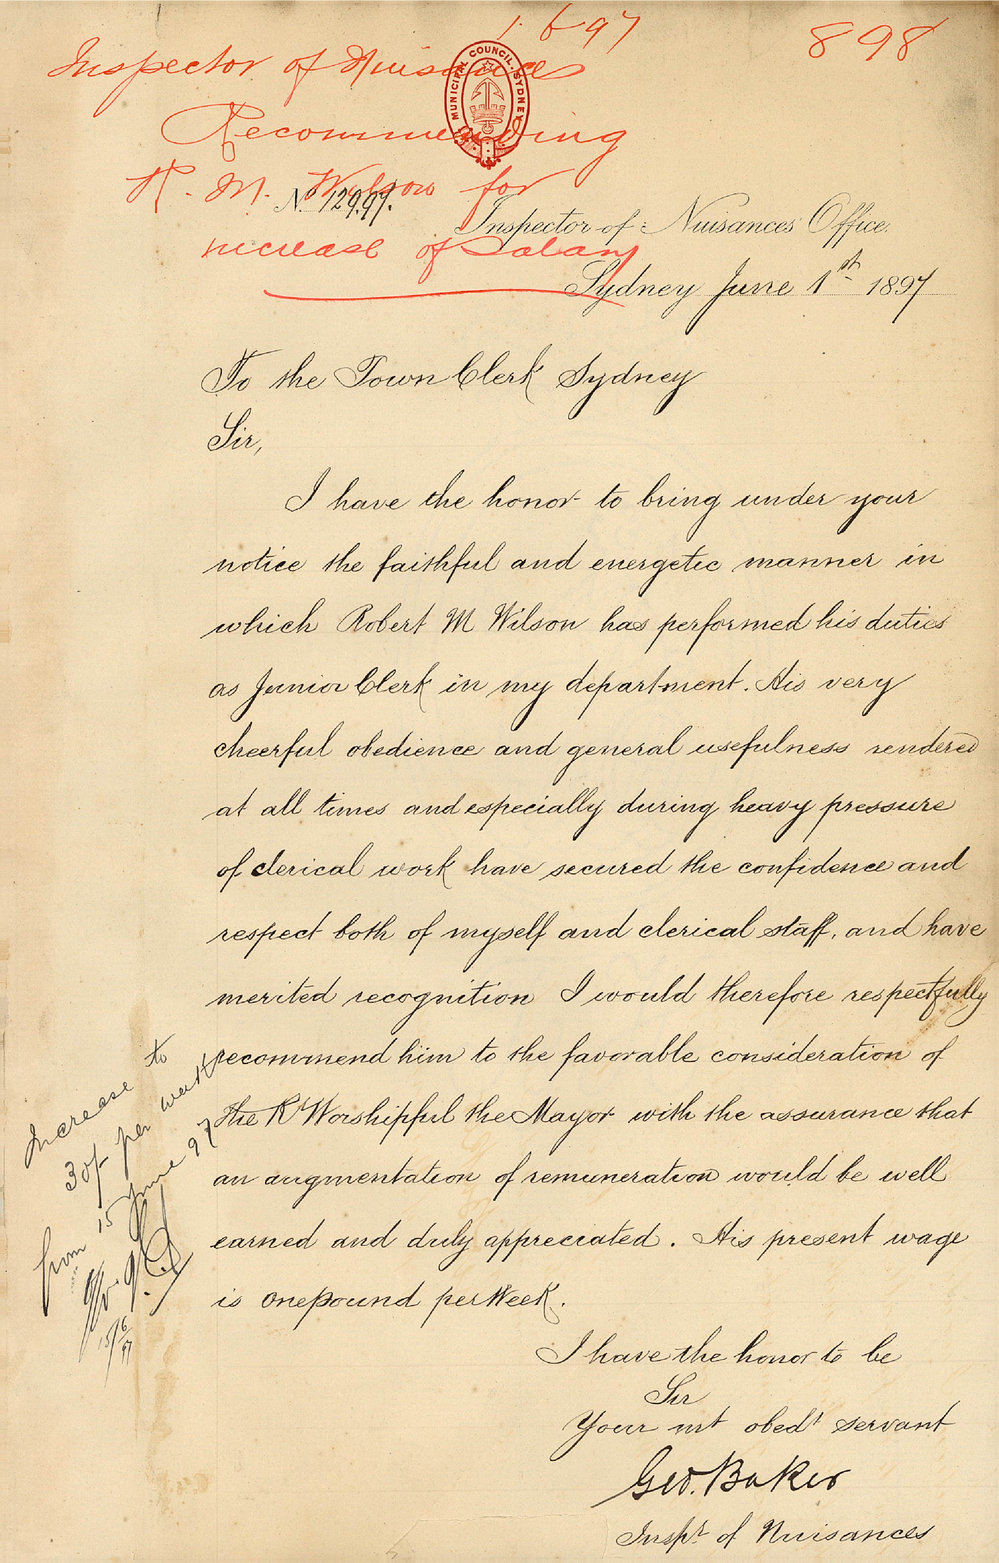 1.6.97
898
Inspector of Nuisances
MUNICIPAL COUNCIL. SYDNEY
Recommending
R. M. Wilson for
No 129.97.
Inspector of Nuisances Office.
increase of Salary
Sydney June 1st 1897
To the Town Clerk Sydney
Sir,
I have the honor to bring under your
notice the faithful and energetic manner in
which Robert M Wilson has performed his duties
as Junior Clerk in my department. His very
cheerful obedience and general usefulness rendered
at all times and especially during heavy pressure
of clerical work have secured the confidence and
respect both of myself and clerical staff, and have
merited recognition I would therefore respectfully
recommend him to the favorable consideration of
the Rt Worshipful the Mayor with the assurance that
an augmentation of remuneration would be well
earned and duly appreciated. His present wage
is one pound per Week.
Increase to
30/- per week
from 15 June 97
15/6/97
I have the honor to be
Sir
Your mt obedt servant
Geo. Baker
Inspr of Nuisances